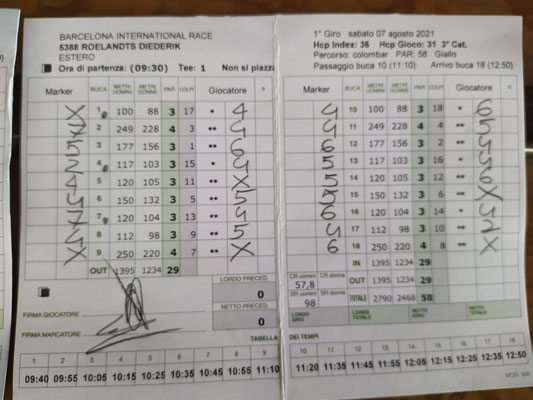 BARCELONA INTERNATIONAL RACE
5388 ROELANDTS DIEDERIK
ESTERO
Ora di partenza: (09:30) Tee: 1 Non si piazz
Marker BUCA METRI UOMINI METRI DONNE PAR COLPI Giocatore *
1 100 88 3 17 * 4
2 249 228 4 3 ** 5
3 177 156 3 1 **
4 117 103 3 15 *
5 120 105 3 11 ** X
6 150 132 3 5 ** 5
7 120 104 3 13 * 5
8 112 98 3 9 ** 5
9 250 220 4 7 ** X
OUT 1395 1234 29
LORDO PRECED.
0
NETTO PRECED.
0
FIRMA GIOCATORE
FIRMA MARCATORE
TABELLA
1 2 3 4 5 6 7 8 9
09:40 09:55 10:05 10:15 10:25 10:35 10:45 10:55 11:10
1° Giro sabato 07 agosto 2021
Hcp Index: 36 Hcp Gioco: 31 3° Cat.
Percorso: colombar PAR: 58 Giallo
Passaggio buca 10 (11:10) Arrivo buca 18 (12:50)
Marker BUCA METRI UOMINI METRI DONNE PAR COLPI Giocatore *
10 100 88 3 18 * 6
11 249 228 4 4 ** 5
12 177 156 3 2 ** 5
13 117 103 3 16 *
14 120 105 3 12 ** 6
15 150 132 3 6 ** X
16 120 104 3 14 *
17 112 98 3 10 **
18 250 220 4 8 ** X
IN 1395 1234 29
CR uomini CR donne OUT 1395 1234 29
57,8
SR uomini SR donne TOTALE 2790 2468 58
98
LORDO GIRO LORDO TOTALE NETTO GIRO NETTO TOTALE
DEI TEMPI
10 11 12 13 14 15 16 17 18
11:20 11:35 11:45 11:55 12:05 12:15 12:25 12:35 12:50